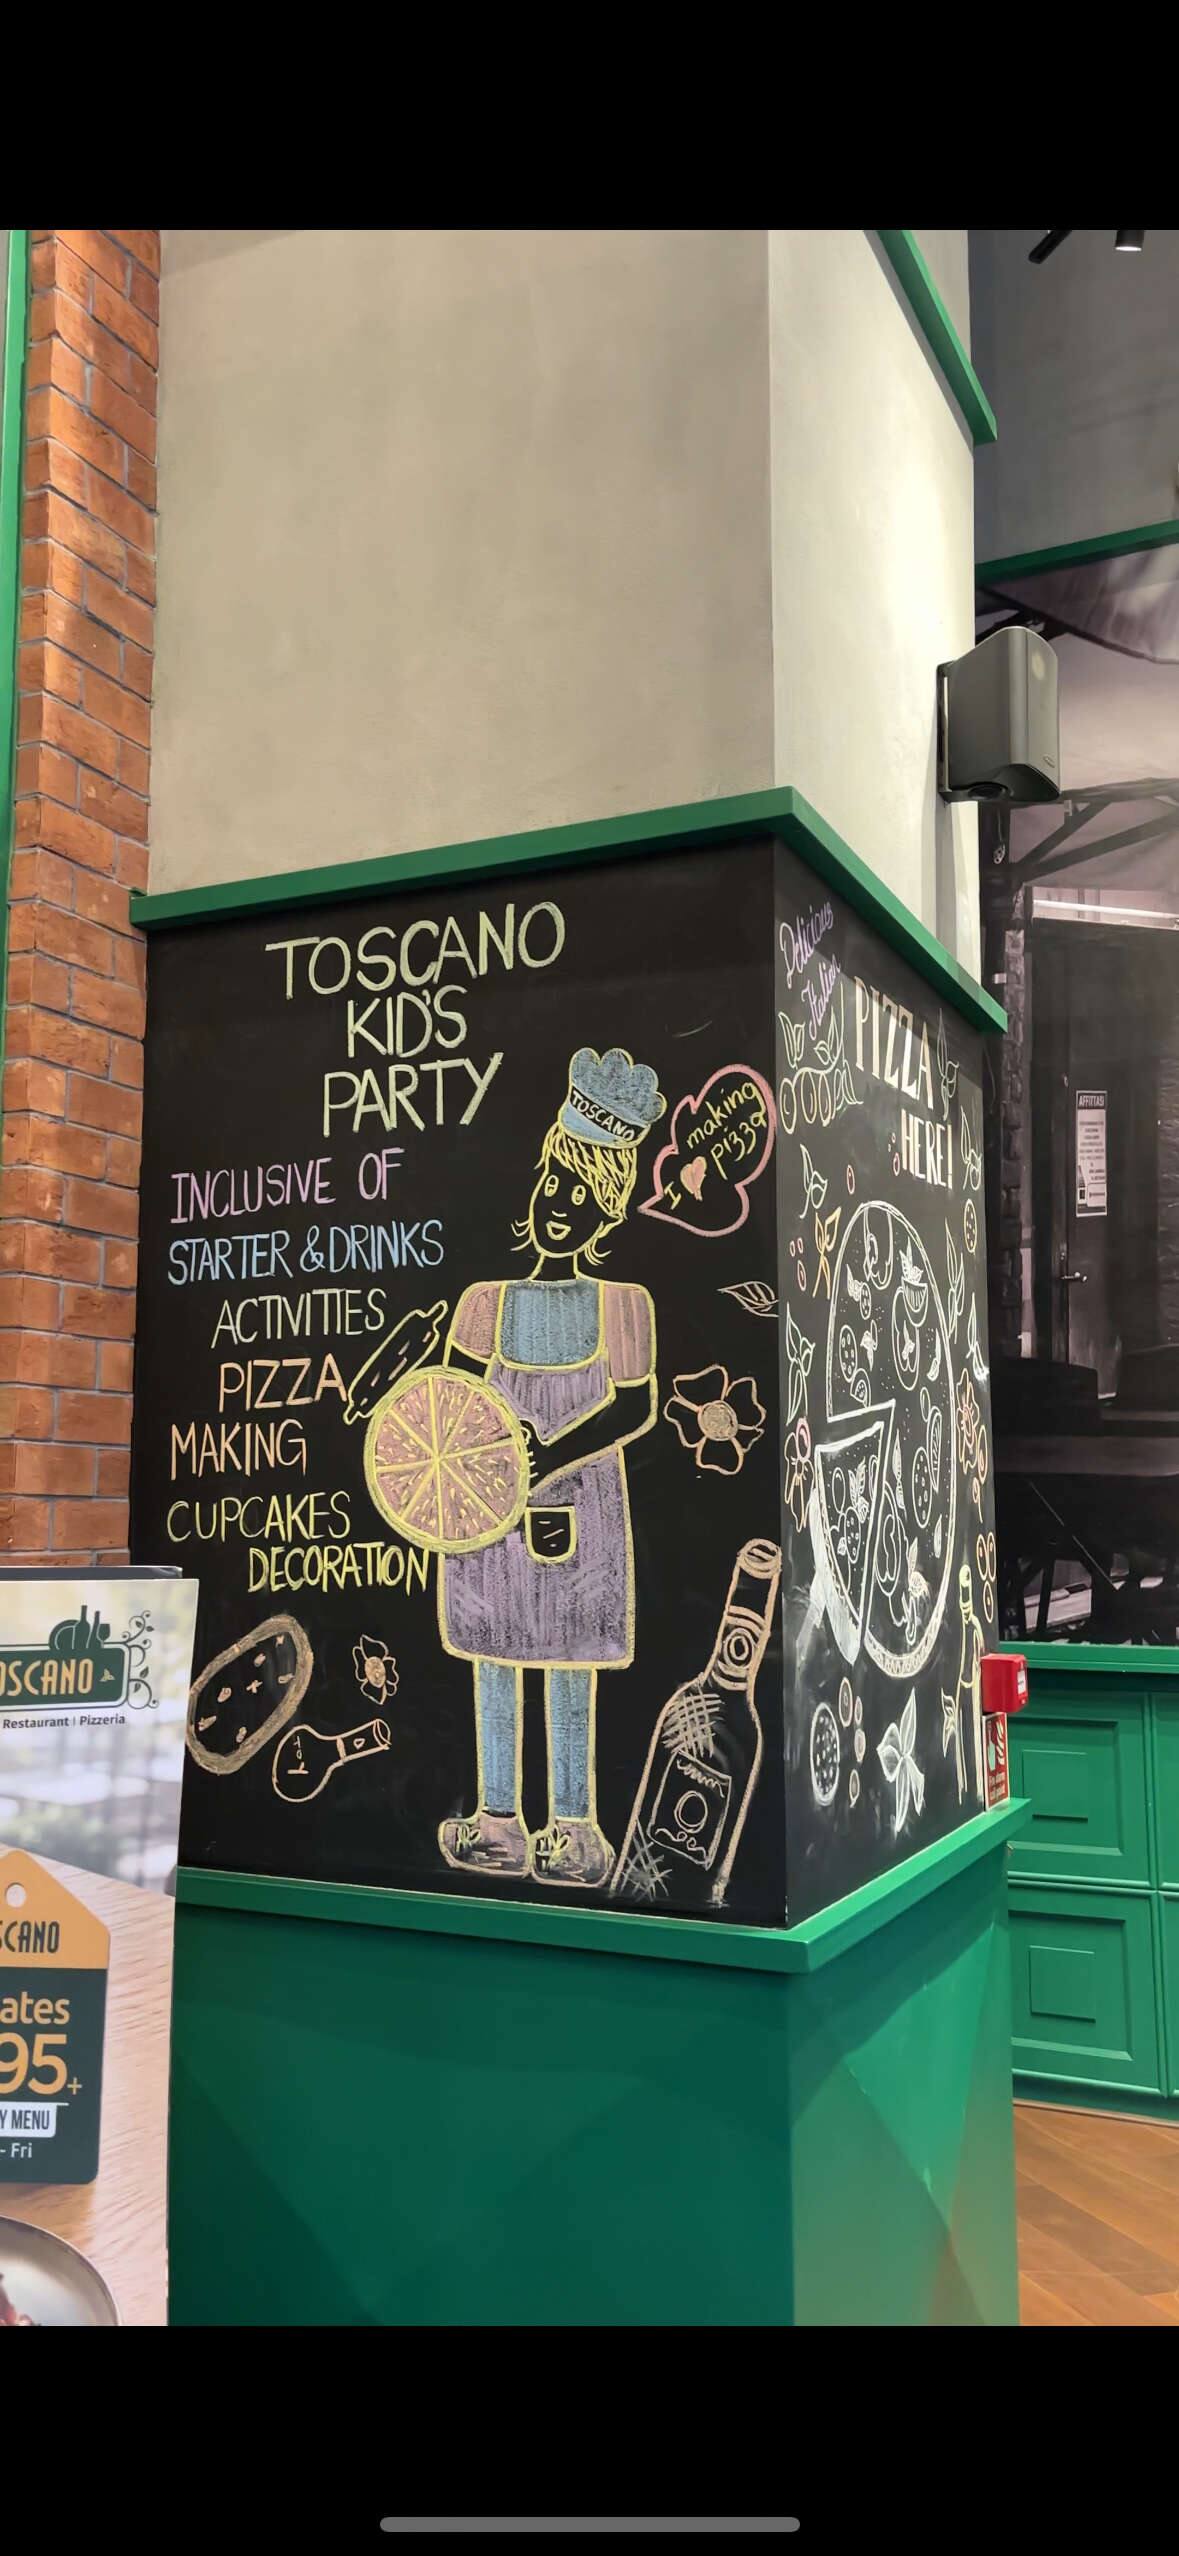 TOSCANO
KID'S
PARTY
INCLUSIVE OF
STARTER & DRINKS
ACTIVITIES
PIZZA
MAKING
CUPCAKES
DECORATION
TOSCANO
I ♥ making
pizza
Delicious
Italian
PIZZA
HERE!
AFFITTASI
OSCANO
Restaurant | Pizzeria
SCANO
ates
95+
Y MENU
- Fri